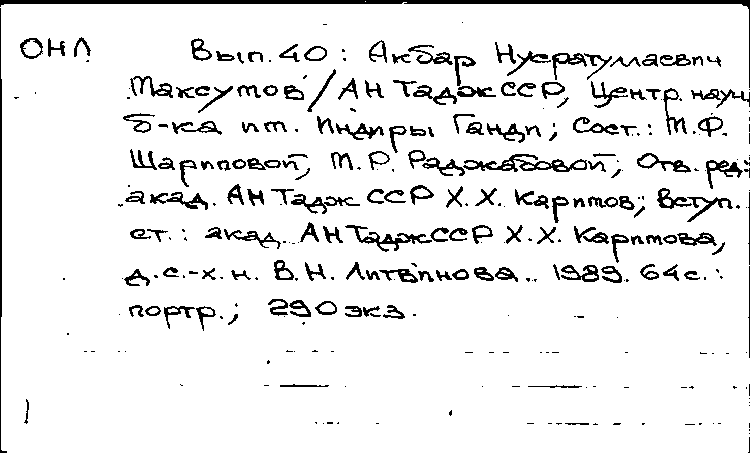 ОНЛ Вып. 40 : Акбар Нусратуллаевич
Максумов / АН ТаджССР, Центр. науч.
б-ка им. Индиры Ганди ; Сост.: М.Ф.
Шариповой, М.Р. Раджабовой ; Отв. ред.:
акад. АН Тадж ССР Х.Х. Каримов ; Вступ.
ст. : акад. АН ТаджССР Х.Х. Каримова,
д.с.-х.н. В.Н. Литвинова.. 1989. 64с. :
портр. ; 290 экз.